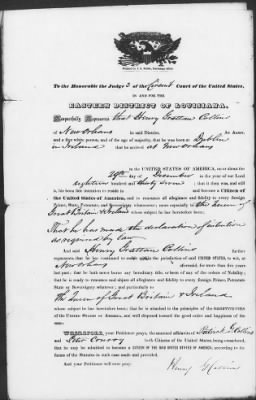 To the Honorable the Judge s of the Circuit Court of the United States,
IN AND FOR THE
EASTERN DISTRICT OF LOUISIANA.
Respectfully Represents that Henry Grattan Collins
of New Orleans in said District,
and a free white person, and of the age of majority, that he was born at Dublin
in Ireland that he arrived at New Orleans
in the UNITED STATES OF AMERICA, on or about the
29th day of December in the year of our Lord
eighteen hundred and thirty seven; that it then was, and still
is, his bona fide intention to reside in and become a Citizen of
the United States of America, and to renounce all allegiance and fidelity to every foreign
Prince, State, Potentate, or Sovereignty whatsoever, and more especially the Queen of
Great Britain & Ireland whose subject he has heretofore been;
That he has made the declaration of intention
as required by law
And said Henry Grattan Collins further
represents, that he has continued to reside within the jurisdiction of said UNITED STATES, to wit, at
New Orleans aforesaid, for more than five years
last past; that he hath never borne any hereditary title, or been of any of the orders of Nobility; that
he is ready to renounce and abjure all allegiance and fidelity to every foreign Prince, Potentate
State or Sovereignty whatsoever; and particularly to
The Queen of Great Britain & Ireland
whose subject he has heretofore been; that he is attached to the principles of the CONSTITUTION OF
THE UNITED STATES OF AMERICA, and well disposed toward the good order and happiness of the
same:
WHEREFORE, your Petitioner prays, the annexed affidavits of Patrick G. Collins
and Peter Conroy both Citizens of the United States being considered,
that he may be admitted to become a CITIZEN OF THE SAID UNITED STATES OF AMERICA, according to the
forms of the Statutes in such case made and provided.
And your Petitioner will ever pray.
Henry G Collins